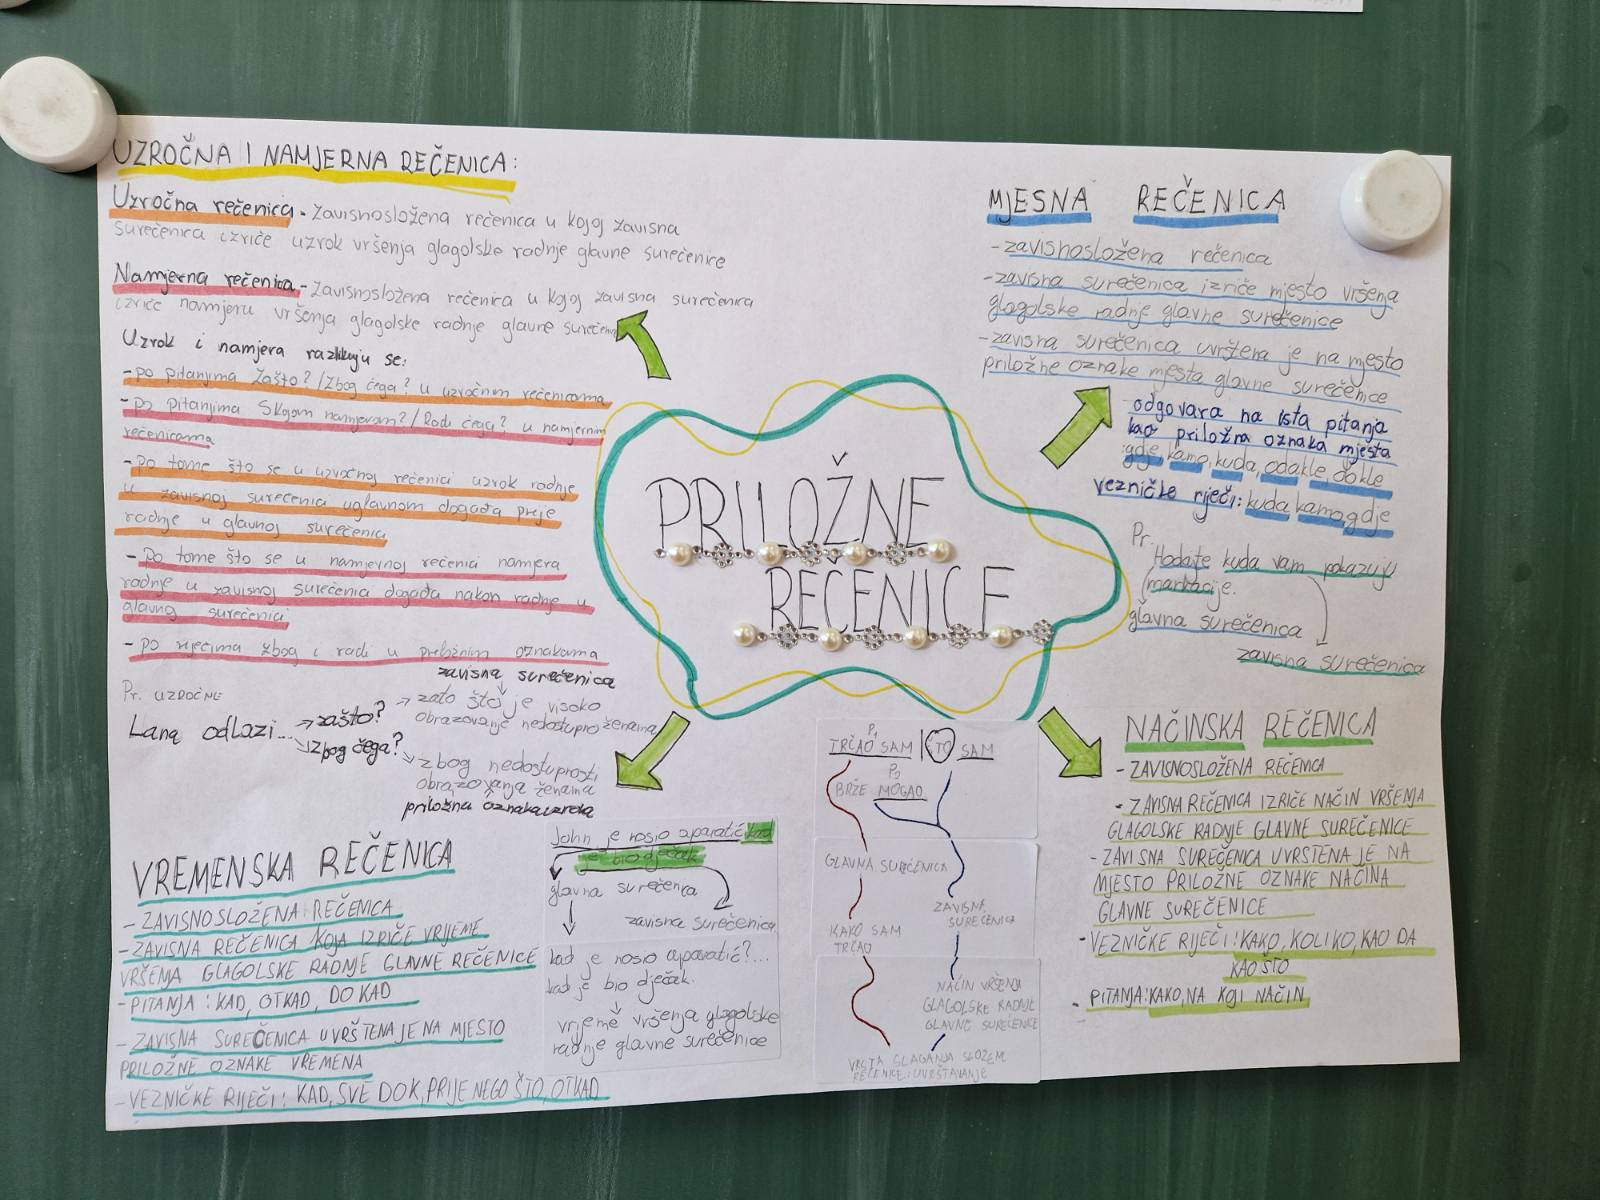 UZROČNA I NAMJERNA REČENICA:
Uzročna rečenica - Zavisnosložena rečenica u kojoj zavisna
surečenica izriče uzrok vršenja glagolske radnje glavne surečenice
Namjerna rečenica - Zavisnosložena rečenica u kojoj zavisna surečenica
izriče namjeru vršenja glagolske radnje glavne
Uzrok i namjera razlikuju se:
-po pitanjima Zašto?/Zbog čega? u uzročnim rečenicama
-po pitanjima S kojom namjerom?/Radi čega? u namjernim
rečenicama
-po tome što se u uzročnoj rečenici uzrok radnje
u zavisnoj surečenici uglavnom događa prije
radnje u glavnoj surečenici
-Po tome što se u namjernoj rečenici namjera
radnje u zavisnoj surečenica događa nakon radnje u
glavnoj surečenici
-po riječima zbog i radi u priložnim oznakama
Pr. UZROČNE
Lang odlazi... → zašto?
→ izbog čega?
zavisna surečenica
→ zato što je visoko
obrazovanje nedostupno ženama
→ zbog nedostupnosti
obrazovanja ženama
priložna oznaka uzroka
PRILOŽNE
REČENICE
MJESNA REČENICA
-zavisnosložena rečenica
-zavisna surečenica izriče mjesto vršenja
glagolske radnje glavne surečenice
-zavisna surečenica uvrštena je na mjesto
priložne oznake mjesta glavne surečenice
odgovara na ista pitanja
kao priložna oznaka mjesta
:gdje, kamo, kuda, odakle, dokle
vezničke riječi: kuda kamo, gdje
Pr.
Hodajte kuda vam pokazuju
markacije.
glavna surečenica
zavisna surečenica
VREMENSKA REČENICA
-ZAVISNOSLOŽENA REČENICA
-ZAVISNA REČENICA KOJA IZRIČE VRIJEME
VRŠENJA GLAGOLSKE RADNJE GLAVNE REČENICE
-PITANJA: KAD, OTKAD, DOKAD
-ZAVISNA SUREČENICA UVRŠTENA JE NA MJESTO
PRILOŽNE OZNAKE VREMENA
-VEZNIČKE RIJEČI: KAD, SVE DOK, PRIJE NEGO ŠTO, OTKAD
John je nosio aparatić kad
je bio dječak
glavna surečenica
zavisna surečenica
kad je nosio aparatić?...
kad je bio dječak.
vrijeme vršenja glagolske
radnje glavne surečenice
P1
TRČAO SAM | ŠTO SAM
P2
BRŽE MOGAO.
GLAVNA SUREČENICA
ZAVISNA
SUREČENICA
KAKO SAM
TRČAO
NAČIN VRŠENJA
GLAGOLSKE RADNJE
GLAVNE SUREČENICE
VRSTA SLAGANJA SLOŽEN.
REČENICE: UVRŠTAVANJE
NAČINSKA REČENICA
-ZAVISNOSLOŽENA REČENICA
-ZAVISNA REČENICA IZRIČE NAČIN VRŠENJA
GLAGOLSKE RADNJE GLAVNE SUREČENICE
-ZAVISNA SUREČENICA UVRŠTENA JE NA
MJESTO PRILOŽNE OZNAKE NAČINA
GLAVNE SUREČENICE
-VEZNIČKE RIJEČI: KAKO, KOLIKO, KAO DA
KAO ŠTO
- PITANJA: KAKO, NA KOJI NAČIN